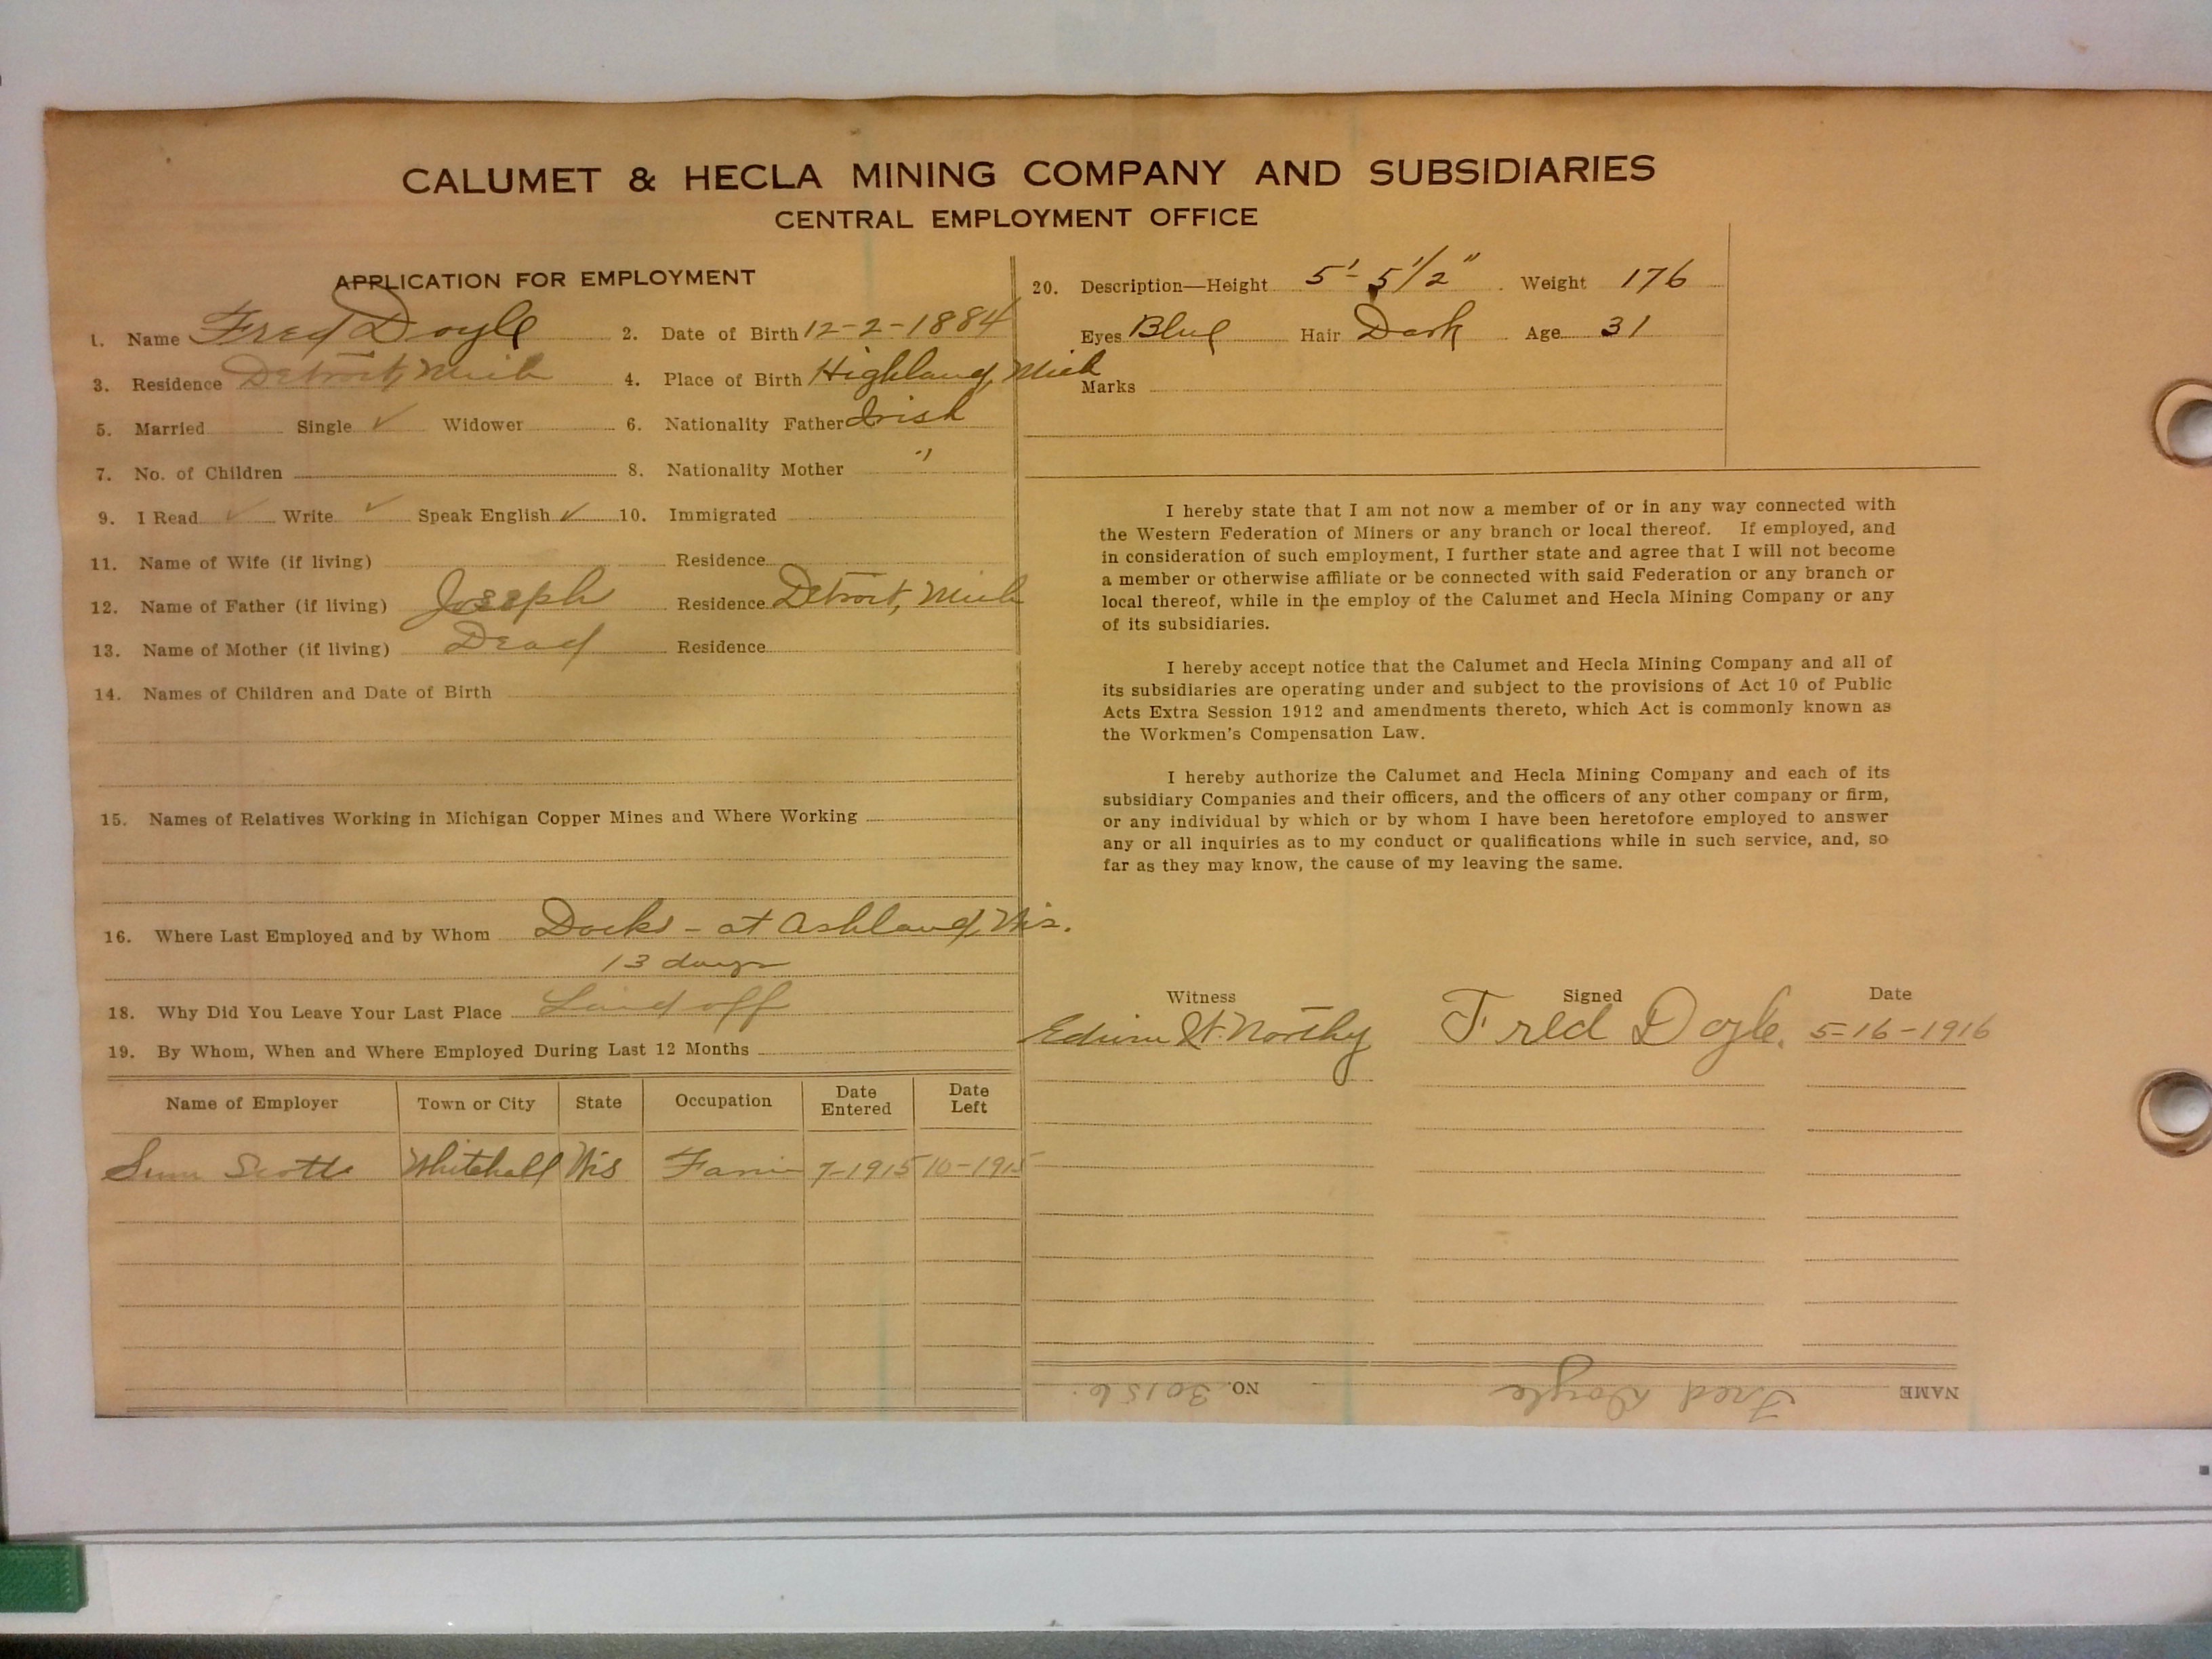 CALUMET & HECLA MINING COMPANY AND SUBSIDIARIES
CENTRAL EMPLOYMENT OFFICE
APPLICATION FOR EMPLOYMENT
1. Name Fred Doyle 2. Date of Birth 12-2-1884
3. Residence Detroit, Mich 4. Place of Birth Highland, Mich
5. Married Single ✓ Widower 6. Nationality Father Irish
7. No. of Children 8. Nationality Mother "
9. I Read ✓ Write ✓ Speak English ✓ 10. Immigrated
11. Name of Wife (if living) Residence
12. Name of Father (if living) Joseph Residence Detroit, Mich
13. Name of Mother (if living) Dead Residence
14. Names of Children and Date of Birth
15. Names of Relatives Working in Michigan Copper Mines and Where Working
16. Where Last Employed and by Whom Docks - at Ashland, Wis.
13 days
18. Why Did You Leave Your Last Place Laid off
19. By Whom, When and Where Employed During Last 12 Months
Name of Employer Town or City State Occupation Date Entered Date Left
Scotts Whitehall Wis Farm 7-1915 10-1915
20. Description—Height 5'-5 1/2" Weight 176
Eyes Blue Hair Dark Age 31
Marks
I hereby state that I am not now a member of or in any way connected with
the Western Federation of Miners or any branch or local thereof. If employed, and
in consideration of such employment, I further state and agree that I will not become
a member or otherwise affiliate or be connected with said Federation or any branch or
local thereof, while in the employ of the Calumet and Hecla Mining Company or any
of its subsidiaries.
I hereby accept notice that the Calumet and Hecla Mining Company and all of
its subsidiaries are operating under and subject to the provisions of Act 10 of Public
Acts Extra Session 1912 and amendments thereto, which Act is commonly known as
the Workmen's Compensation Law.
I hereby authorize the Calumet and Hecla Mining Company and each of its
subsidiary Companies and their officers, and the officers of any other company or firm,
or any individual by which or by whom I have been heretofore employed to answer
any or all inquiries as to my conduct or qualifications while in such service, and, so
far as they may know, the cause of my leaving the same.
Witness Signed Date
Edwin H. Northy Fred Doyle. 5-16-1916
NAME Fred Doyle NO. 30156.